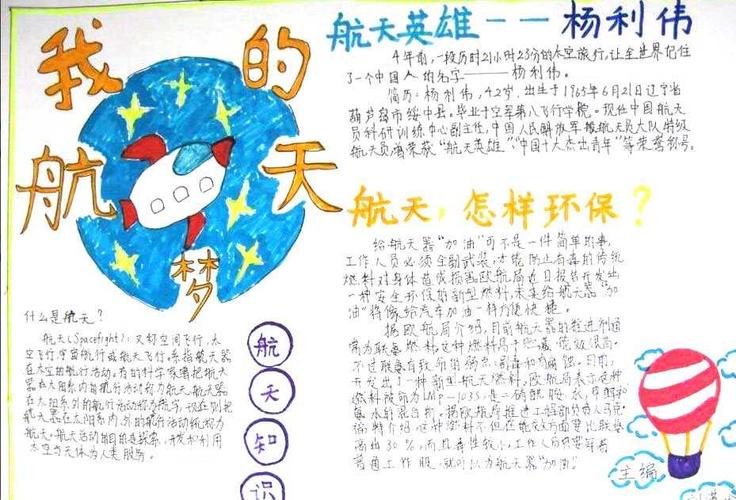 我的
航天
梦
什么是航天?
航天(Spacefight):又称空间飞行,太
空飞行,宇宙航行或航天飞行,系指航天器
在太空的航行活动,有的科学家还把航天
器在太阳系内的航行活动称为航天,航天器
在太阳系外的航行活动称为航宇,现在则把
航天器在太阳系内、外的航行活动统称为
航天,航天活动的目的是探索、开发和利用
太空与天体为人类服务。
航
天
知
识
航天英雄——杨利伟
4年前,一段历时21小时23分的太空旅行,让全世界记住
了一个中国人的名字——杨利伟。
简历:杨利伟,42岁,出生于1965年6月21日辽宁省
葫芦岛市绥中县。毕业于空军第八飞行学院。现任中国航天
员科研训练中心副主任,中国人民解放军航天员大队特级
航天员,曾荣获“航天英雄”,“中国十大杰出青年”等荣誉称号。
航天,怎样环保?
给航天器“加油”可不是一件简单的事,
工作人员必须全副武装,才能防止有毒的传统
燃料对身体造成损害,欧航局近日报告开发出
一种安全环保的新型燃料,未来给航天器“加
油”将像给汽车加油一样方便快捷。
据欧航局介绍,目前航天器的推进剂通
常为联氨燃料,这种燃料
不过联氨有致命的弱点:剧毒和腐蚀。
开发出了一种新型航天燃料,欧航局表示这种
燃料被命名为LMP-103S,是
氨水
介绍,这种燃料不但在能效方面要比联氨
高出30%,而且毒性较小,工作人员只要穿着
普通工作服,就可以为航天器“加油”!
主编